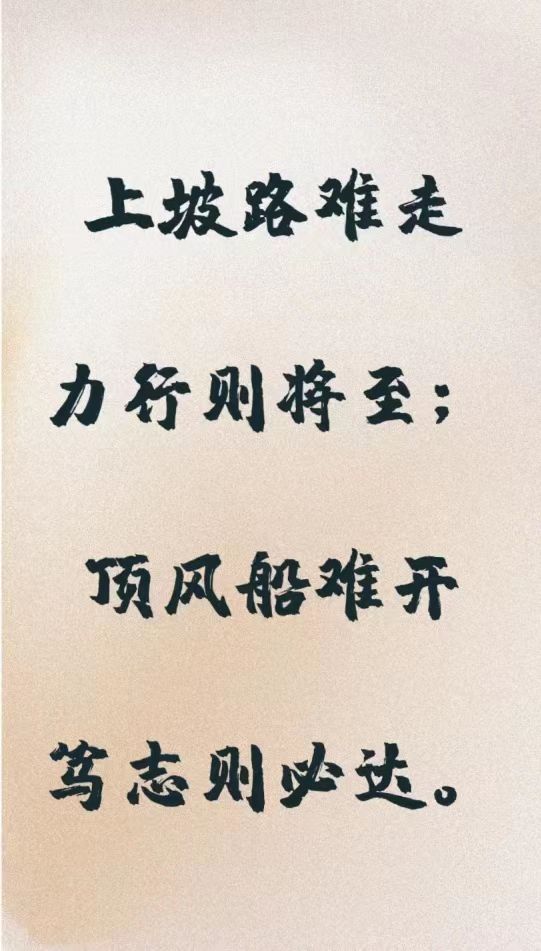 上坡路难走
力行则将至；
顶风船难开
笃志则必达。